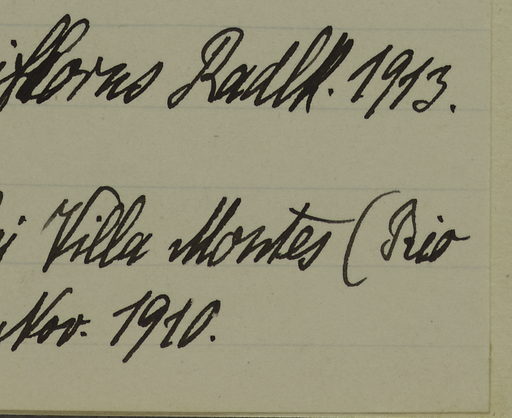 iflorus Radlk. 1913.
i Villa Montes (Rio
Nov. 1910.